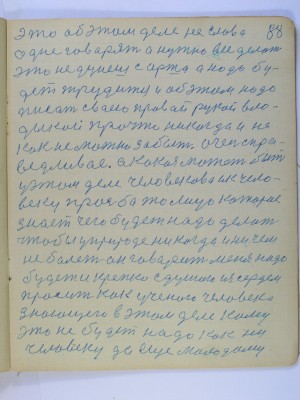 это об этом деле не слова 88
одне говарят а нужно все делать
это не душеи с арта а надо бу-
дет трудится и об этом надо
писат сваею правай рукой вло-
дыкой прочто никогда и не
как неможно забыт. очен спра-
ведливае. а какоя может быт
у этом деле человекова к чело-
веку прозба то лицо каторае
знает чего будет надо делат
чтобы у природе никогда и ни чем
не балет он говарит меня надо
будет и крепко с душою и сердем
просит как ученого человека
знающего в этом деле кому
это не будет надо как ни
человеку да еще молодому